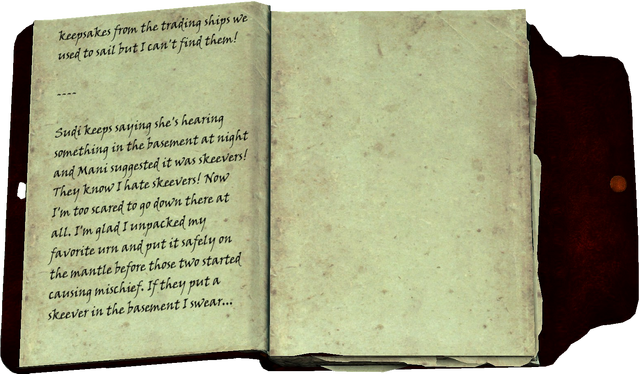 keepsakes from the trading ships we
used to sail but I can't find them!
----
Sudi keeps saying she's hearing
something in the basement at night
and Mani suggested it was skeevers!
They know I hate skeevers! Now
I'm too scared to go down there at
all. I'm glad I unpacked my
favorite urn and put it safely on
the mantle before those two started
causing mischief. If they put a
skeever in the basement I swear...